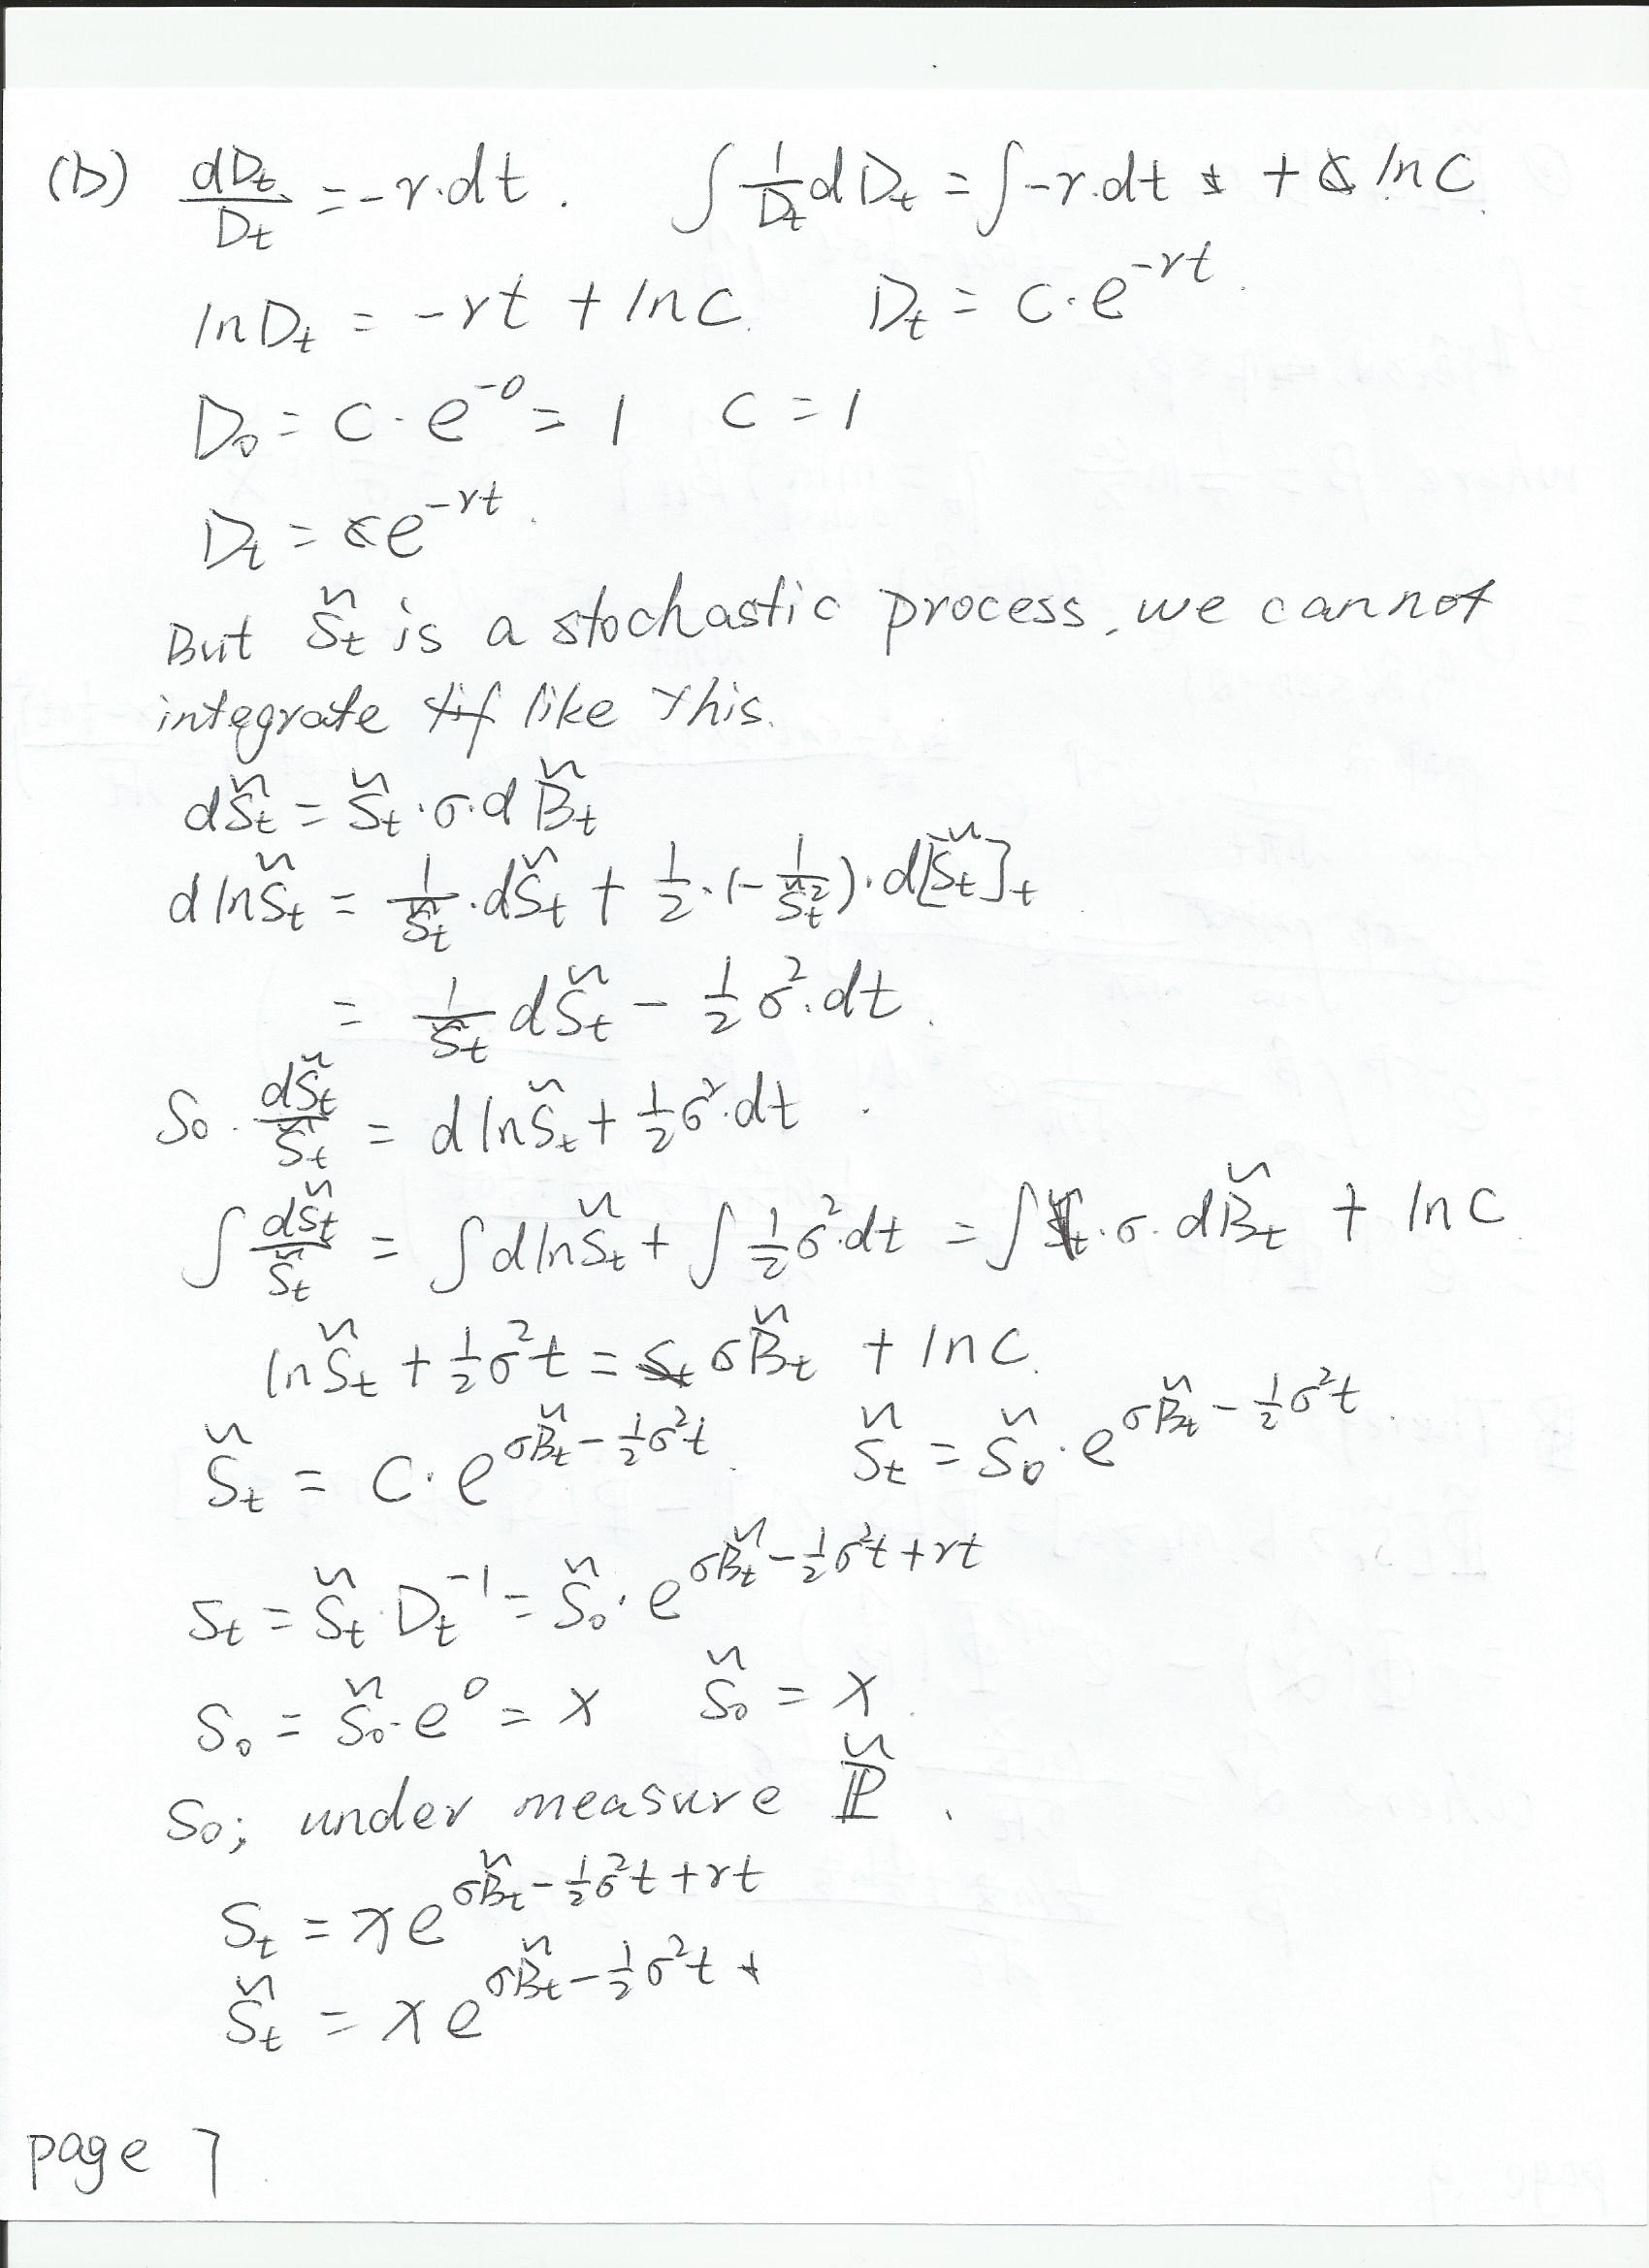 (b) dD_t/D_t = -r·dt. ∫ 1/D_t dD_t = ∫ -r·dt + ln C.
ln D_t = -rt + ln C. D_t = C·e^{-rt}.
D_0 = C·e^{-0} = 1 C = 1
D_t = e^{-rt}.
But S̃_t is a stochastic process, we cannot
integrate like this.
dS̃_t = S̃_t·σ·dB̃_t
d ln S̃_t = 1/S̃_t · dS̃_t + 1/2·(-1/S̃_t²)·d[S̃_t]_t
= 1/S̃_t dS̃_t - 1/2 σ²·dt.
So. dS̃_t/S̃_t = d ln S̃_t + 1/2 σ²·dt.
∫ dS̃_t/S̃_t = ∫ d ln S̃_t + ∫ 1/2 σ²·dt = ∫ σ·dB̃_t + ln C
ln S̃_t + 1/2 σ²t = σB̃_t + ln C.
S̃_t = C·e^{σB̃_t - 1/2 σ²t}. S̃_t = S̃_0·e^{σB̃_t - 1/2 σ²t}.
S_t = S̃_t·D_t^{-1} = S̃_0·e^{σB̃_t - 1/2 σ²t + rt}
S_0 = S̃_0·e^0 = x S̃_0 = x.
So; under measure ℙ̃.
S_t = x e^{σB̃_t - 1/2 σ²t + rt}
S̃_t = x e^{σB̃_t - 1/2 σ²t}
page 7